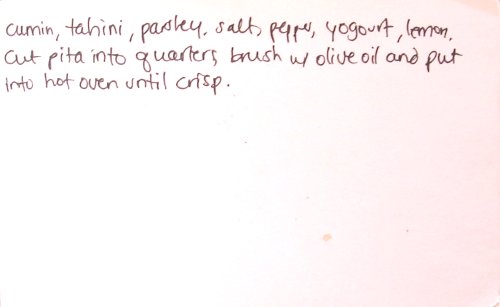 cumin, tahini, parsley, salt, pepper, yogourt, lemon.
Cut pita into quarters, brush w/ olive oil and put
into hot oven until crisp.